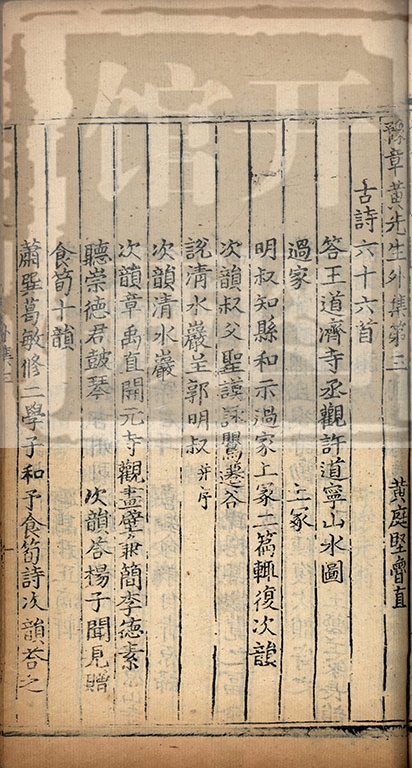 豫章黃先生外集第三
黃庭堅魯直
古詩六十六首
答王道濟寺丞觀許道寧山水圖
過家　上冢
明叔知縣和示過家上冢二篇輒復次韻
次韻叔父聖謨詠鸎遷谷
說清水巖呈郭明叔 并序
次韻清水巖
次韻章禹直開元寺觀畫壁兼簡李德素
聽崇德君鼓琴　次韻答楊子聞見贈
食筍十韻
蕭巽葛敏修二學子和予食筍詩次韻荅之
外集三